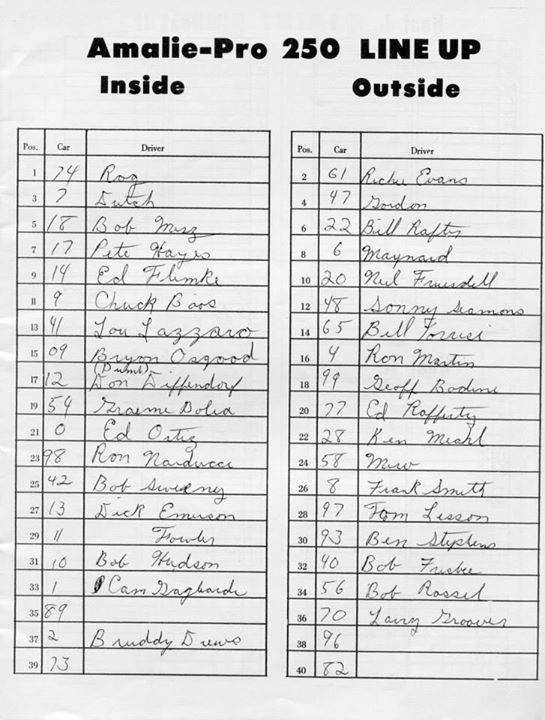 Amalie-Pro 250 LINE UP
Inside
Outside
Pos. Car Driver
1 74 Rog
3 7 Dutch
5 18 Bob Merz
7 17 Pete Hayes
9 14 Ed Flemke
11 9 Chuck Boos
13 41 Lou Lazzaro
15 09 Bryon Osgood
17 12 Don Diffendorf
19 54 Graeme Bolia
21 0 Ed Ortiz
23 98 Ron Narducci
25 42 Bob Sweeney
27 13 Dick Emerson
29 11 Fowler
31 10 Bob Hudson
33 1 Cam Gagliardi
35 89
37 2 Bruddy Drews
39 73
Pos. Car Driver
2 61 Richie Evans
4 47 Gordon
6 22 Bill Rafter
8 6 Maynard
10 20
12 48 Sonny Seamons
14 65 Bill
16 4 Ron Martin
18 99 Geoff Bodine
20 77 Ed Rafferty
22 28 Ken Meahl
24 58
26 8 Frank Smith
28 97 Tom Lesson
30 93 Ben Stephens
32 40 Bob Frisbee
34 56 Bob Rossel
36 70 Larry Groover
38 96
40 82